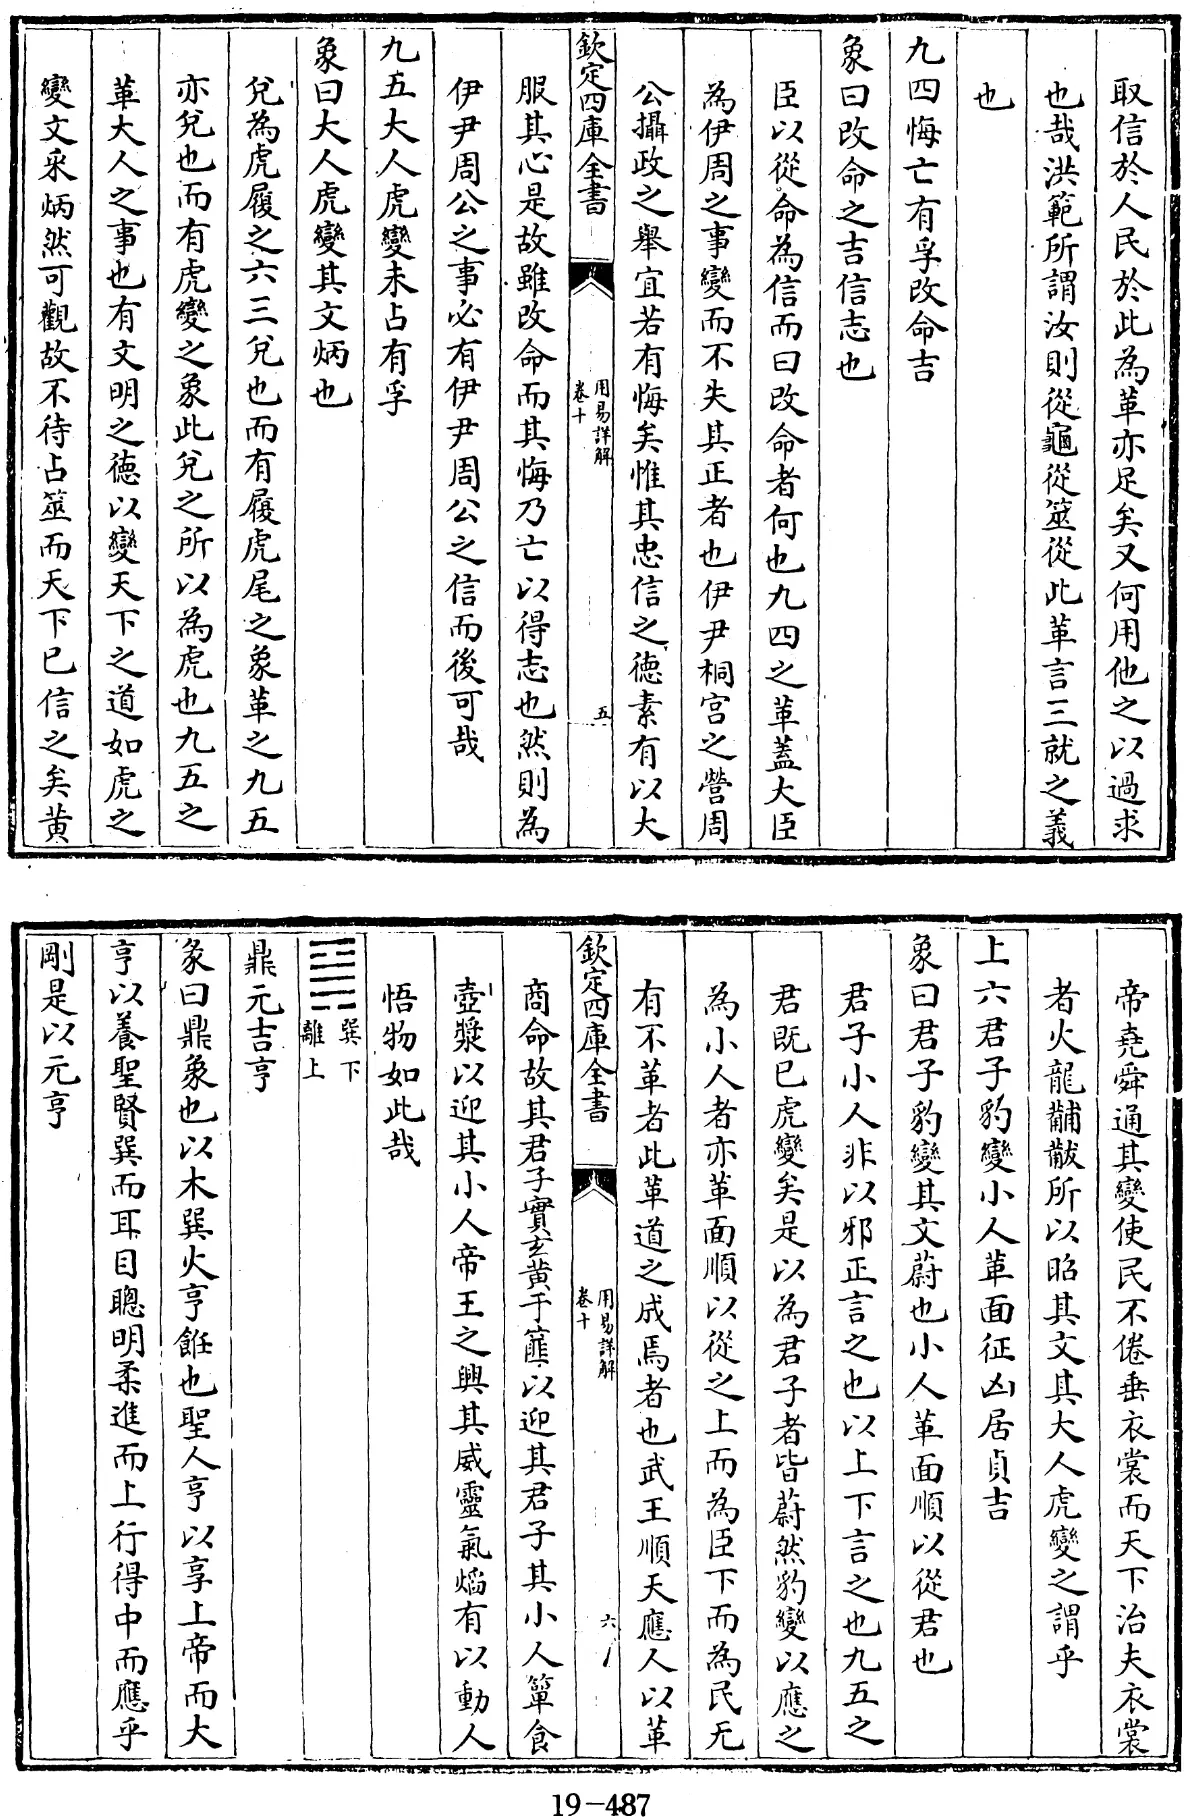 取信於人民於此為革亦足矣又何用他之以過求
也哉洪範所謂汝則從龜從筮從此革言三就之義
也
九四悔亡有孚改命吉
象曰改命之吉信志也
臣以從命為信而曰改命者何也九四之革蓋大臣
為伊周之事變而不失其正者也伊尹桐宮之營周
公攝政之舉宜若有悔矣惟其忠信之德素有以大
欽定四庫全書
用易詳解
卷十
五
服其心是故雖改命而其悔乃亡以得志也然則為
伊尹周公之事必有伊尹周公之信而後可哉
九五大人虎變未占有孚
象曰大人虎變其文炳也
兌為虎履之六三兌也而有履虎尾之象革之九五
亦兌也而有虎變之象此兌之所以為虎也九五之
革大人之事也有文明之德以變天下之道如虎之
變文采炳然可觀故不待占筮而天下已信之矣黃
帝堯舜通其變使民不倦垂衣裳而天下治夫衣裳
者火龍黼黻所以昭其文其大人虎變之謂乎
上六君子豹變小人革面征凶居貞吉
象曰君子豹變其文蔚也小人革面順以從君也
君子小人非以邪正言之也以上下言之也九五之
君既已虎變矣是以為君子者皆蔚然豹變以應之
為小人者亦革面順以從之上而為臣下而為民无
有不革者此革道之成焉者也武王順天應人以革
欽定四庫全書
用易詳解
卷十
六
商命故其君子實玄黃于篚以迎其君子其小人簞食
壺漿以迎其小人帝王之興其威靈氣焰有以動人
悟物如此哉
巽下
離上
鼎元吉亨
彖曰鼎象也以木巽火亨飪也聖人亨以享上帝而大
亨以養聖賢巽而耳目聰明柔進而上行得中而應乎
剛是以元亨
19-487